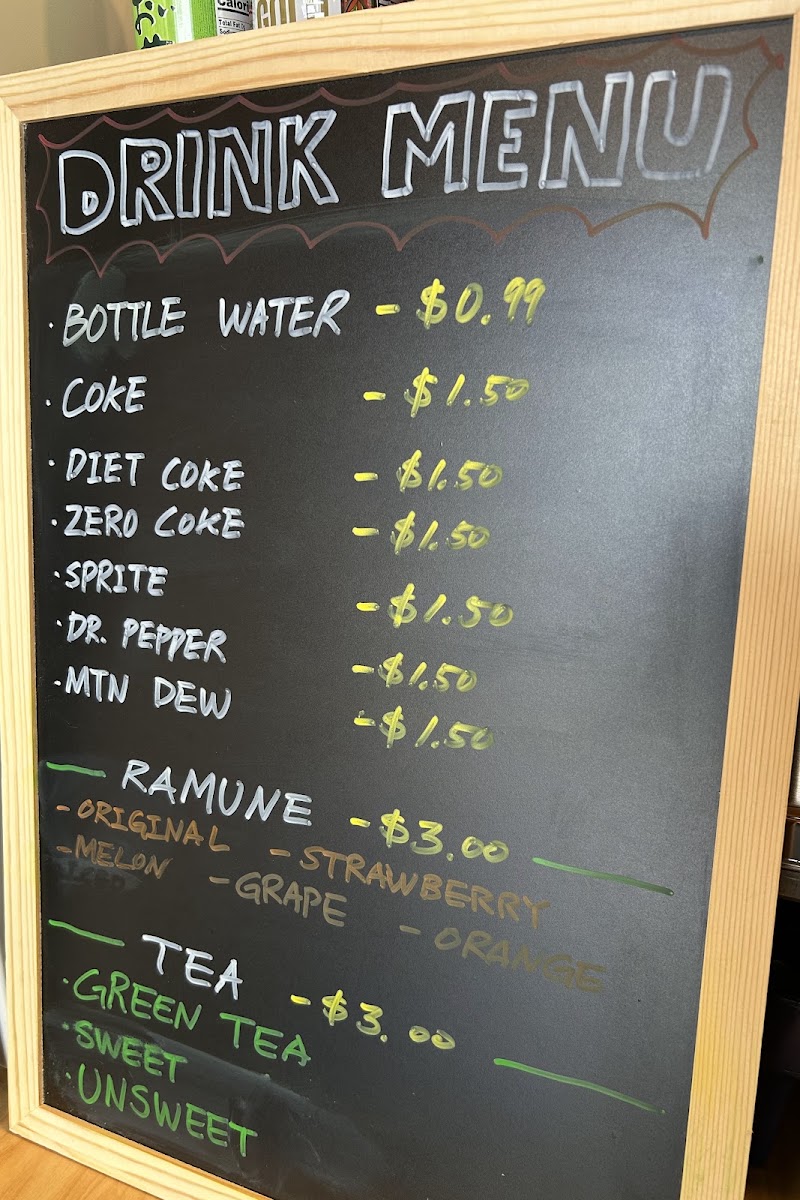 Calori
Total Fat
DRINK MENU
· BOTTLE WATER - $0.99
· COKE - $1.50
· DIET COKE - $1.50
· ZERO COKE - $1.50
· SPRITE - $1.50
· DR. PEPPER - $1.50
· MTN DEW - $1.50
RAMUNE - $3.00
- ORIGINAL - STRAWBERRY
- MELON - GRAPE - ORANGE
TEA - $3.00
· GREEN TEA
· SWEET
· UNSWEET